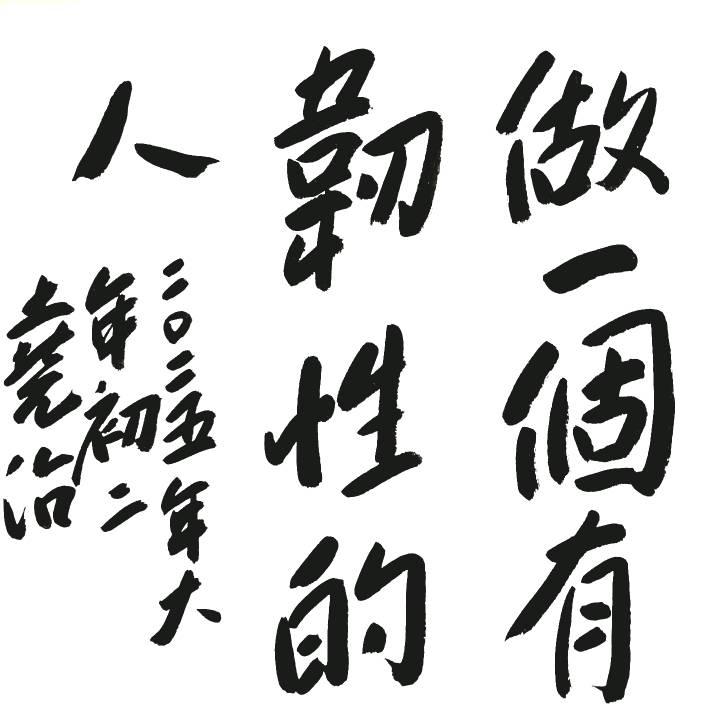 做一個有
韌性的
人
二〇二五年大
年初二
堯治